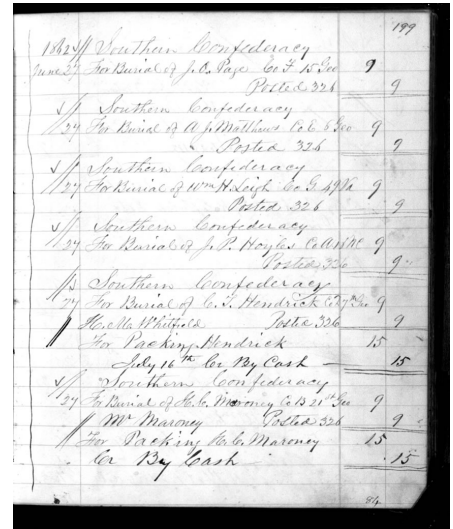 199
1862 Southern Confederacy
June 27 For Burial of J. A. Page Co F 15 Geo 9
Posted 326 9
Southern Confederacy
27 For Burial of A J Matthews Co E 5 Geo 9
Posted 326 9
Southern Confederacy
27 For Burial of Wm H. Leigh Co G. 49 Va 9
Posted 326 9
Southern Confederacy
27 For Burial of J. P. Hoyles Co A NC 9
Posted 326 9
Southern Confederacy
27 For Burial of C. T. Hendrick Co 27th Geo 9
H. M. Whitfield Posted 326 9
For Packing Hendrick 15
July 16th Cr By Cash 15
Southern Confederacy
27 For Burial of H. C. Maroney Co B 21st Geo 9
Mr Maroney Posted 326 9
For Packing H. C. Maroney 15
Cr By Cash 15
84